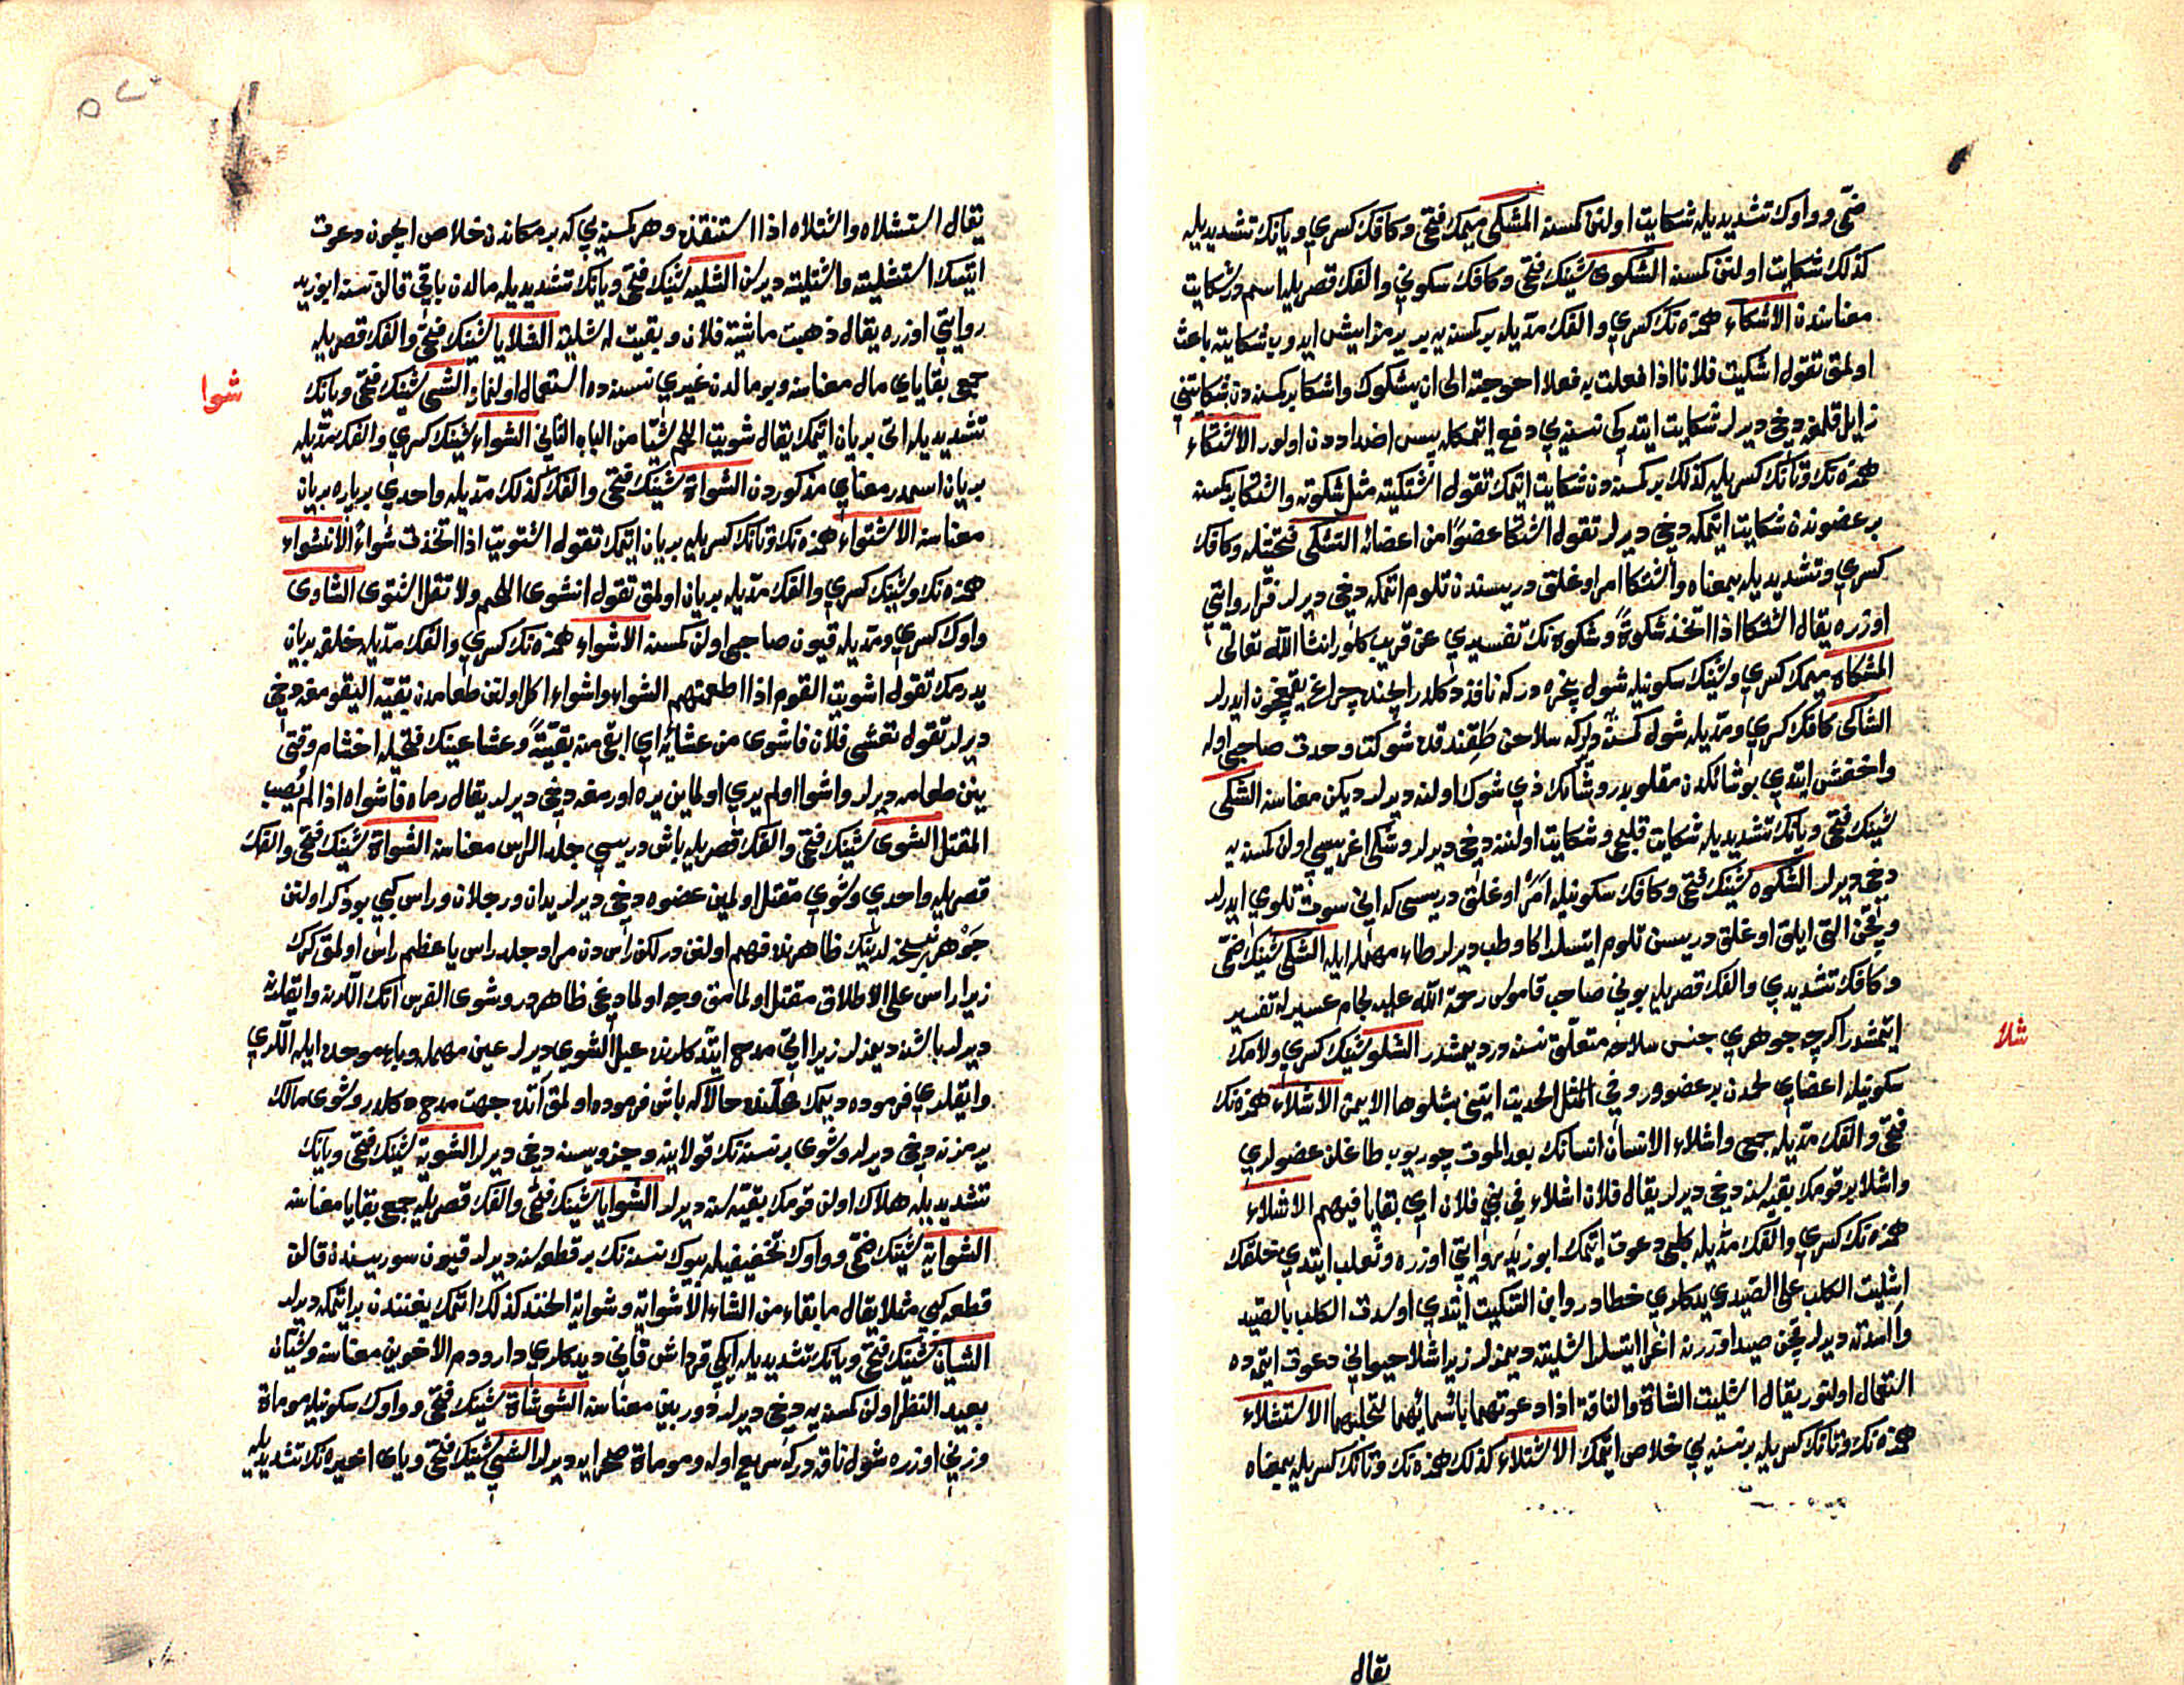 ضمّى و واوك تشديديله شكايت اولنن كمسنه المشكى ميمك فتحى و كافك كسرى و يانك تشديديله
كذلك شكايت اولنن كمسنه الشكوى شينك فتحى و كافك سكونى و الفك قصريله اسمدر شكايت
معناسنه الاشكاء همزه نك كسرى و الفك مدّيله بر كمسنه يه بر يرمز ايش ايدوب شكايته باعث
اولمق تقول اشكيت فلانا اذا فعلت به فعلا احوجته الى ان يشكوك و اشكا بر كمسنه دن شكايتنى
زايل قلمغه دخى ديرلر شكايت ايتدكى نسنه يى دفع ايتمكله پس اضداددن اولور الاشتكاء
همزه نك و تانك كسريله كذلك بر كمسنه دن شكايت ايتمك تقول اشتكيته مثل شكوته و اشتكا بر كمسنه
بر عضوندن شكايت ايتمكه دخى ديرلر تقول اشتكا عضوًا من اعضائه التشكى فتحتيله و كافك
كسرى و تشديديله بمعناه و اشتكا امر اوغلق دريسندن تلوم ايتمكه دخى ديرلر فرّا روايتى
اوزره يقال اشتكا اذا اتخذ شكوةً و شكوة نك تفسيرى عن قريب كلور انشا الله تعالى
المشكاة ميمك كسرى و شينك سكونيله شول پنجره در كه نافذ دكلدر ايچنده چراغ يقمچون ايدرلر
الشاكى كافك كسرى و مدّيله شول كمسنه ديرلر كه سلاحن طقنديقده شوكت و حدت صاحبى اوله
و اخفش ايتدى بو شائكدن مقلوبدر و شانك ذى شوك اولنه ديرلر ديكن معناسنه الشكى
شينك فتحى و يانك تشديديله شكايت قليجى و شكايت اولننه دخى ديرلر و شكى اغريسى اولن كمسنه يه
دخى ديرلر الشكوه شينك فتحى و كافك سكونيله امر اوغلق دريسى كه انى سوت تلومى ايدرلر
و قچن التى ايلق اوغلق دريسن تلوم ايتسلر اكا وطب ديرلر طاء مهمله ايله الشكى شينك ضمّى
و كافك تشديدى و الفك قصريله بونى صاحب قاموس رحمة الله عليه لجام عسير له تفسير
ايتمشدر اكرچه جوهرى جنس سلاحه متعلّق نسنه در ديمشدر الشلو شينك كسرى و لامك
سكونيله اعضاى لحمدن بر عضوور و فى المثل الحديث ايتنى بشلوها الايمن الاشلاء همزه نك
فتحى و الفك مدّيله جمع و اشلاء الانسان انسانك بعد الموت چوريوب طاغلن عضولرى
و اشلا بر قومك بقيه سنه دخى ديرلر يقال فلان اشلاء فى بنى فلان اى بقايا فيهم الاشلاء
همزه نك كسرى و الفك مدّيله كلبى دعوت ايتمك ابو زيد روايتى اوزره و ثعلب ايتدى خلقك
اشليت الكلب على الصيد ديدكلرى خطادر و ابن السكيت ايتدى اوسدت الكلب بالصيد
و آسدته ديرلر قچن صيد اوزرنه اغرا ايتسلر اشليته ديمزلر زيرا اشلا حيوانى دعوت ايتمه ده
استعمال اولنور يقال اشليت الشاة و الناقة اذا دعوتهما باسمائهما لتحلبهما الاستشلاء
همزه نك و تانك كسريله بر نسنه يى خلاص ايتمك الاشتلاء كذلك همزه نك و تانك كسريله بمعناه
شلا
يقال
يقال استشلاه و اشتلاه اذا استنقذه و هر كمسنه يى كه بر مكاندن خلاص ايچون دعوت
ايتسك استشليته و اشتليته ديرسن الشليه شينك فتحى و يانك تشديديله مالدن باقى قالن نسنه ابو زيد
روايتى اوزره يقال ذهبت ماشية فلان و بقيت له شلية الشلايا شينك فتحى و الفك قصريله
جمع بقاياى مال معناسنه و بو مالدن غيرى نسنه ده استعمال اولنماز الشى شينك فتحى و يانك
تشديديله اتى بريان ايتمك يقال شويت اللحم شيّا من الباب الثانى الشواء شينك كسرى و الفك مدّيله
بريان اسمدر معناى مذكوردن الشواة شينك فتحى و الفك كذلك مدّيله واحدى بر پاره بريان
معناسنه الاشتواء همزه نك و تانك كسريله بريان ايتمك تقول اشتويت اذا اتخذت شواءً الانشواء
همزه نك و شينك كسرى و الفك مدّيله بريان اولمق تقول انشوى اللحم ولا تقل اشتوى الشاوى
واوك كسرى و مدّيله قيون صاحبى اولن كمسنه الاشواء همزه نك كسرى و الفك مدّيله خلقه بريان
يدرمك تقول اشويت القوم اذا اطعمتهم الشواء و اشواء اكل اولنن طعامدن بقيّه اليقومغه دخى
ديرلر تقول تعشى فلان فاشوى من عشائه اى ابقى منه بقيّةً و عشا عينك فتحيله اخشام وقتى
ينن طعامه ديرلر و اشوا اولم يرى اولماين يره اورمغه دخى ديرلر يقال رماه فاشواه اذا لم يُصِب
المقتل الشوى شينك فتحى و الفك قصريله باش دريسى جلد الراس معناسنه الشواة شينك فتحى و الفك
قصريله واحدى و شوى مقتل اولمين عضوه دخى ديرلر يدان و رجلان و راس كبى بو ذكر اولنن
جَوْهر نسخه لرينك ظاهرندن فهم اولنن در لكن راس دن مراد جلد راس يا عظم راس اولمق كرك
زيرا راس على الاطلاق مقتل اولمامق وجه اولمادغى ظاهر در و شوى الفرس اتك اللرينه و ايقلرينه
ديرلر باشنه ديمزلر زيرا انى مدح ايتدكلرنده عبل الشوى ديرلر عين مهمله و باء موحده ايله اللرى
و ايقلرى فرموده ديمك محلنده حالا كه باش فرموده اولمق آتده جهت مدح دكلدر و شوى مالك
يرمزنه دخى ديرلر و شوى بر نسنه نك قولاينه و جزويسنه دخى ديرلر الشوية شينك فتحى و يانك
تشديديله هلاك اولن قومك بقيّه سنه ديرلر الشوايا شينك فتحى و الفك قصريله جمع بقايا معناسنه
الشواية شينك ضمّى و واوك تخفيفيله بيوك نسنه نك بر قطعه سنه ديرلر قيون سوريسندن قالن
قطعه كبى مثلا يقال ما بقاء من الشاء الا شواية و شواية الخبز كذلك اتمك يغنندن بر اتمكه ديرلر
الشيان شينك فتحى و يانك تشديديله ايكى قرداش قانى ديدكلرى دارو دم الاخوين معناسنه و شيان
بعيد النظر اولن كمسنه يه دخى ديرلر دوربين معناسنه الشوشاة شينك فتحى و واوك سكونيله موماة
وزنى اوزره شول ناقه در كه سريع اوله و موماة صحرايه ديرلر الشىّ شينك فتحى و ياى اخيره نك تشديديله
شوا